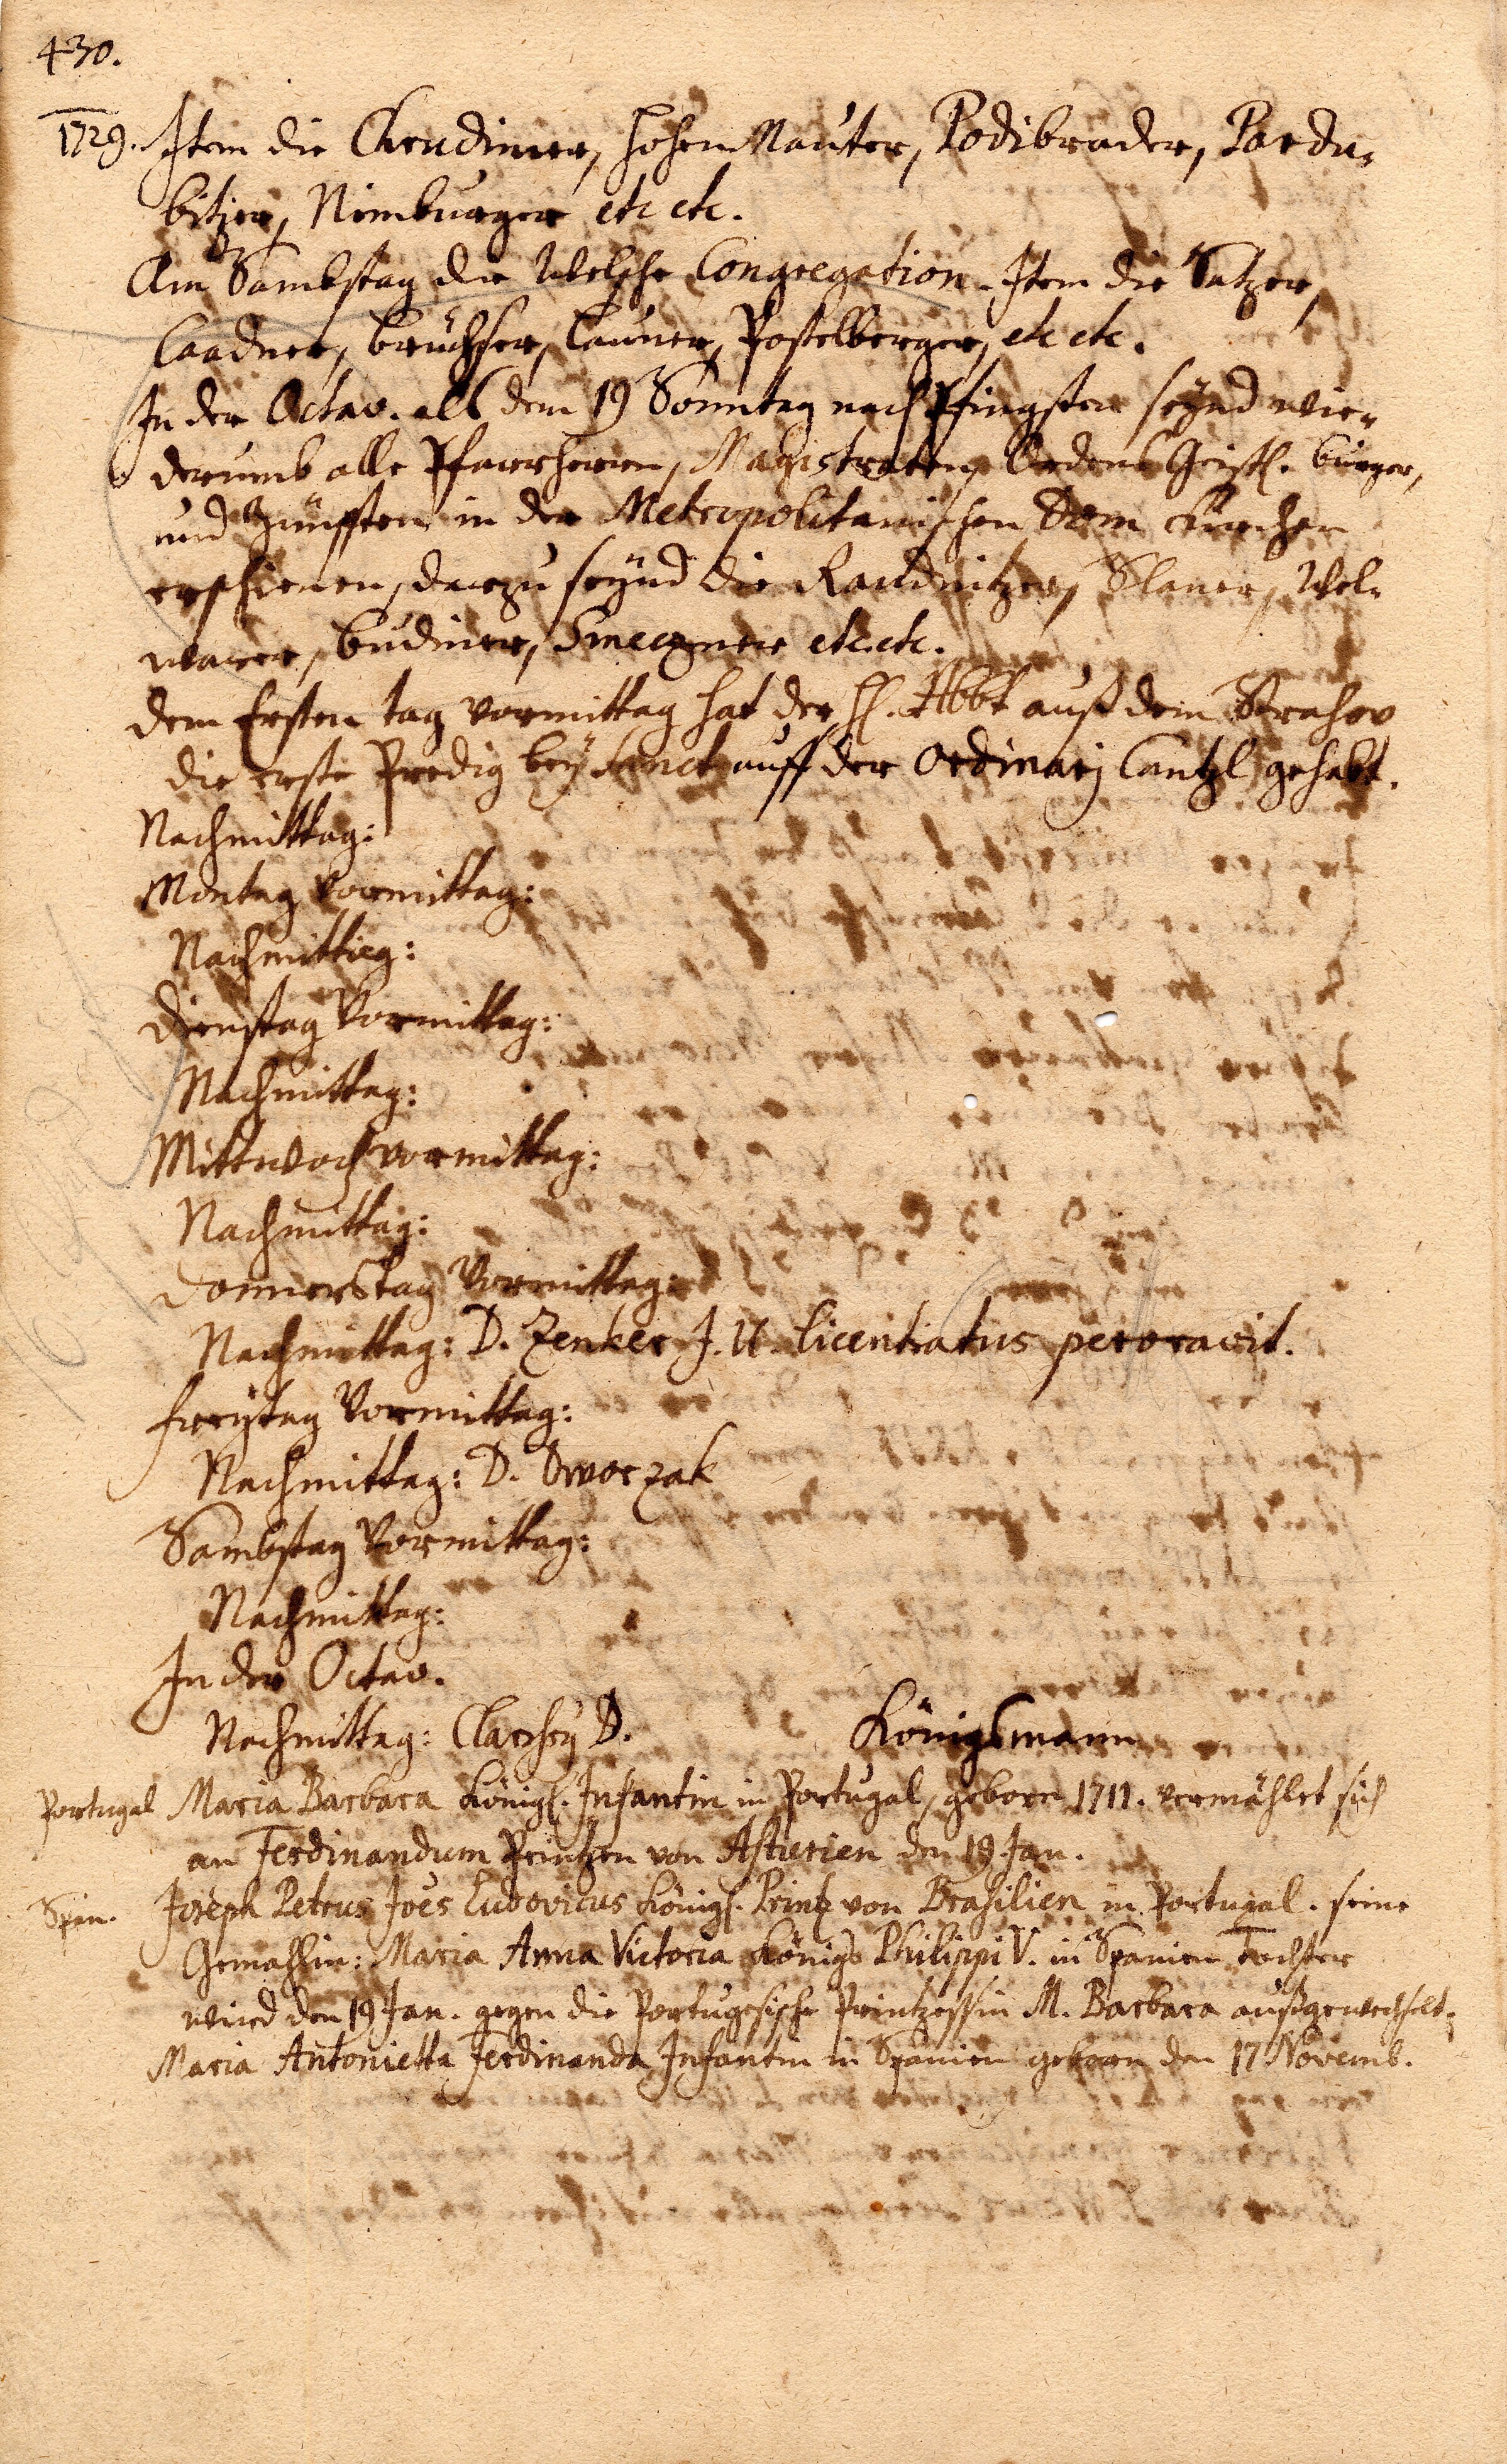 430.
1729. Item die Chrudimer, Hohen Mauter, Podibrader, Pardu-
bitzer, Nimburger etc etc.
Am Sambstag die Welsche Congregation. Item die Satzer,
Caadner, Brüchser, Launer, Postelberger, etc etc.
In der Octav. alß dem 19 Sonntag nach Pfingsten seynd wie-
derumb alle Pfarrherren, Magistraten, Ordens Geistl. Bürger,
und Zünfften in der Metropolitanischen Dom Kirchen
erschienen, darzu seynd die Raudnitzer, Slaner, Wel-
warer, Budiner, Smeczner etc. etc.
Dem Ersten tag vormittag hat der H. Abbt auß dem Strahov
die erste Predig bey Sanct auff der Ordinarj Cantzl gehabt.
Nachmittag:
Montag Vormittag:
Nachmittag:
Dienstag Vormittag:
Nachmittag:
Mittwoch vormittag:
Nachmittag:
Donnerstag Vormittag:
Nachmittag: D. Zenker J. U. Licentiatus peroravit.
Freytag Vormittag:
Nachmittag: D. Dworzak
Sambstag Vormittag:
Nachmittag:
In der Octav.
Nachmittag: D. Königsmann
Portugal Maria Barbara Königl. Infantin in Portugal, geborn 1711. vermählet sich
an Ferdinandum Printzen von Asturien den 19 Jan.
Span. Joseph Petrus Joes Ludovicus Königl. Printz von Brasilien in Portugal. seine
Gemahlin: Maria Anna Victoria Königs Philippi V. in Spanien Tochter
wird den 19 Jan. gegen die Portugesische Printzessin M. Barbara außgewechselt.
Maria Antonietta Ferdinanda Infantin in Spanien geborn den 17 Novemb.